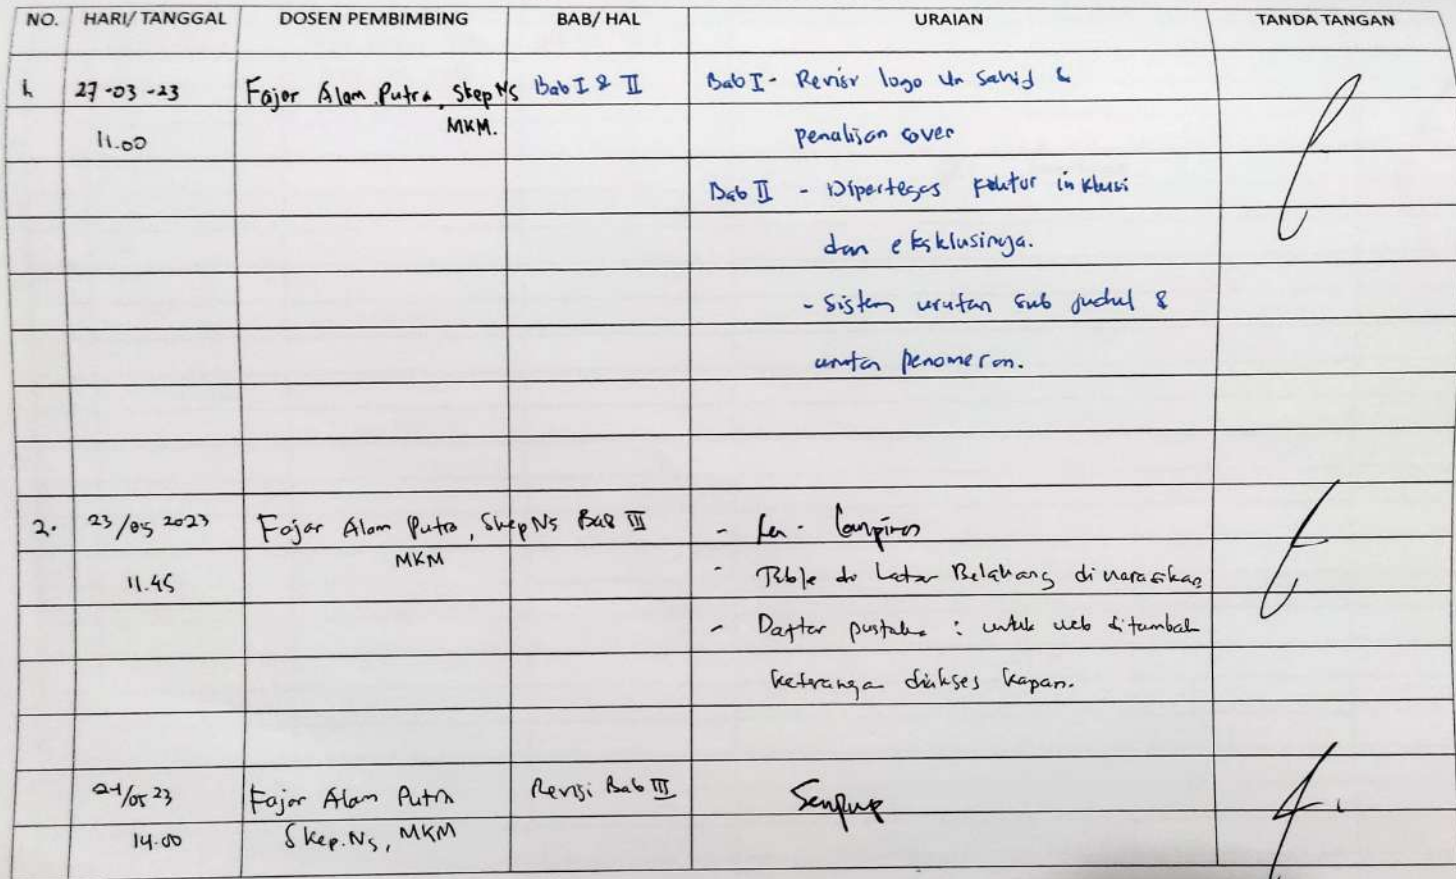 NO. HARI/ TANGGAL DOSEN PEMBIMBING BAB/ HAL URAIAN TANDA TANGAN
1. 27-03-23 Fajar Alam Putra, Skep Ns Bab I & II Bab I - Revisi logo Usahid &
11.00 MKM. penulisan cover
Bab II - Dipertegas faktor inklusi
dan eksklusinya.
- Sistem urutan sub judul &
urutan penomeran.
2. 23/05 2023 Fajar Alam Putra, Skep Ns Bab III - lampiran
MKM
11.45 - Table di Latar Belakang dinarasikan
- Daftar pustaka : untuk web ditambah
keterangan diakses kapan.
24/05 23 Fajar Alam Putra Revisi Bab III
14.00 Skep.Ns, MKM